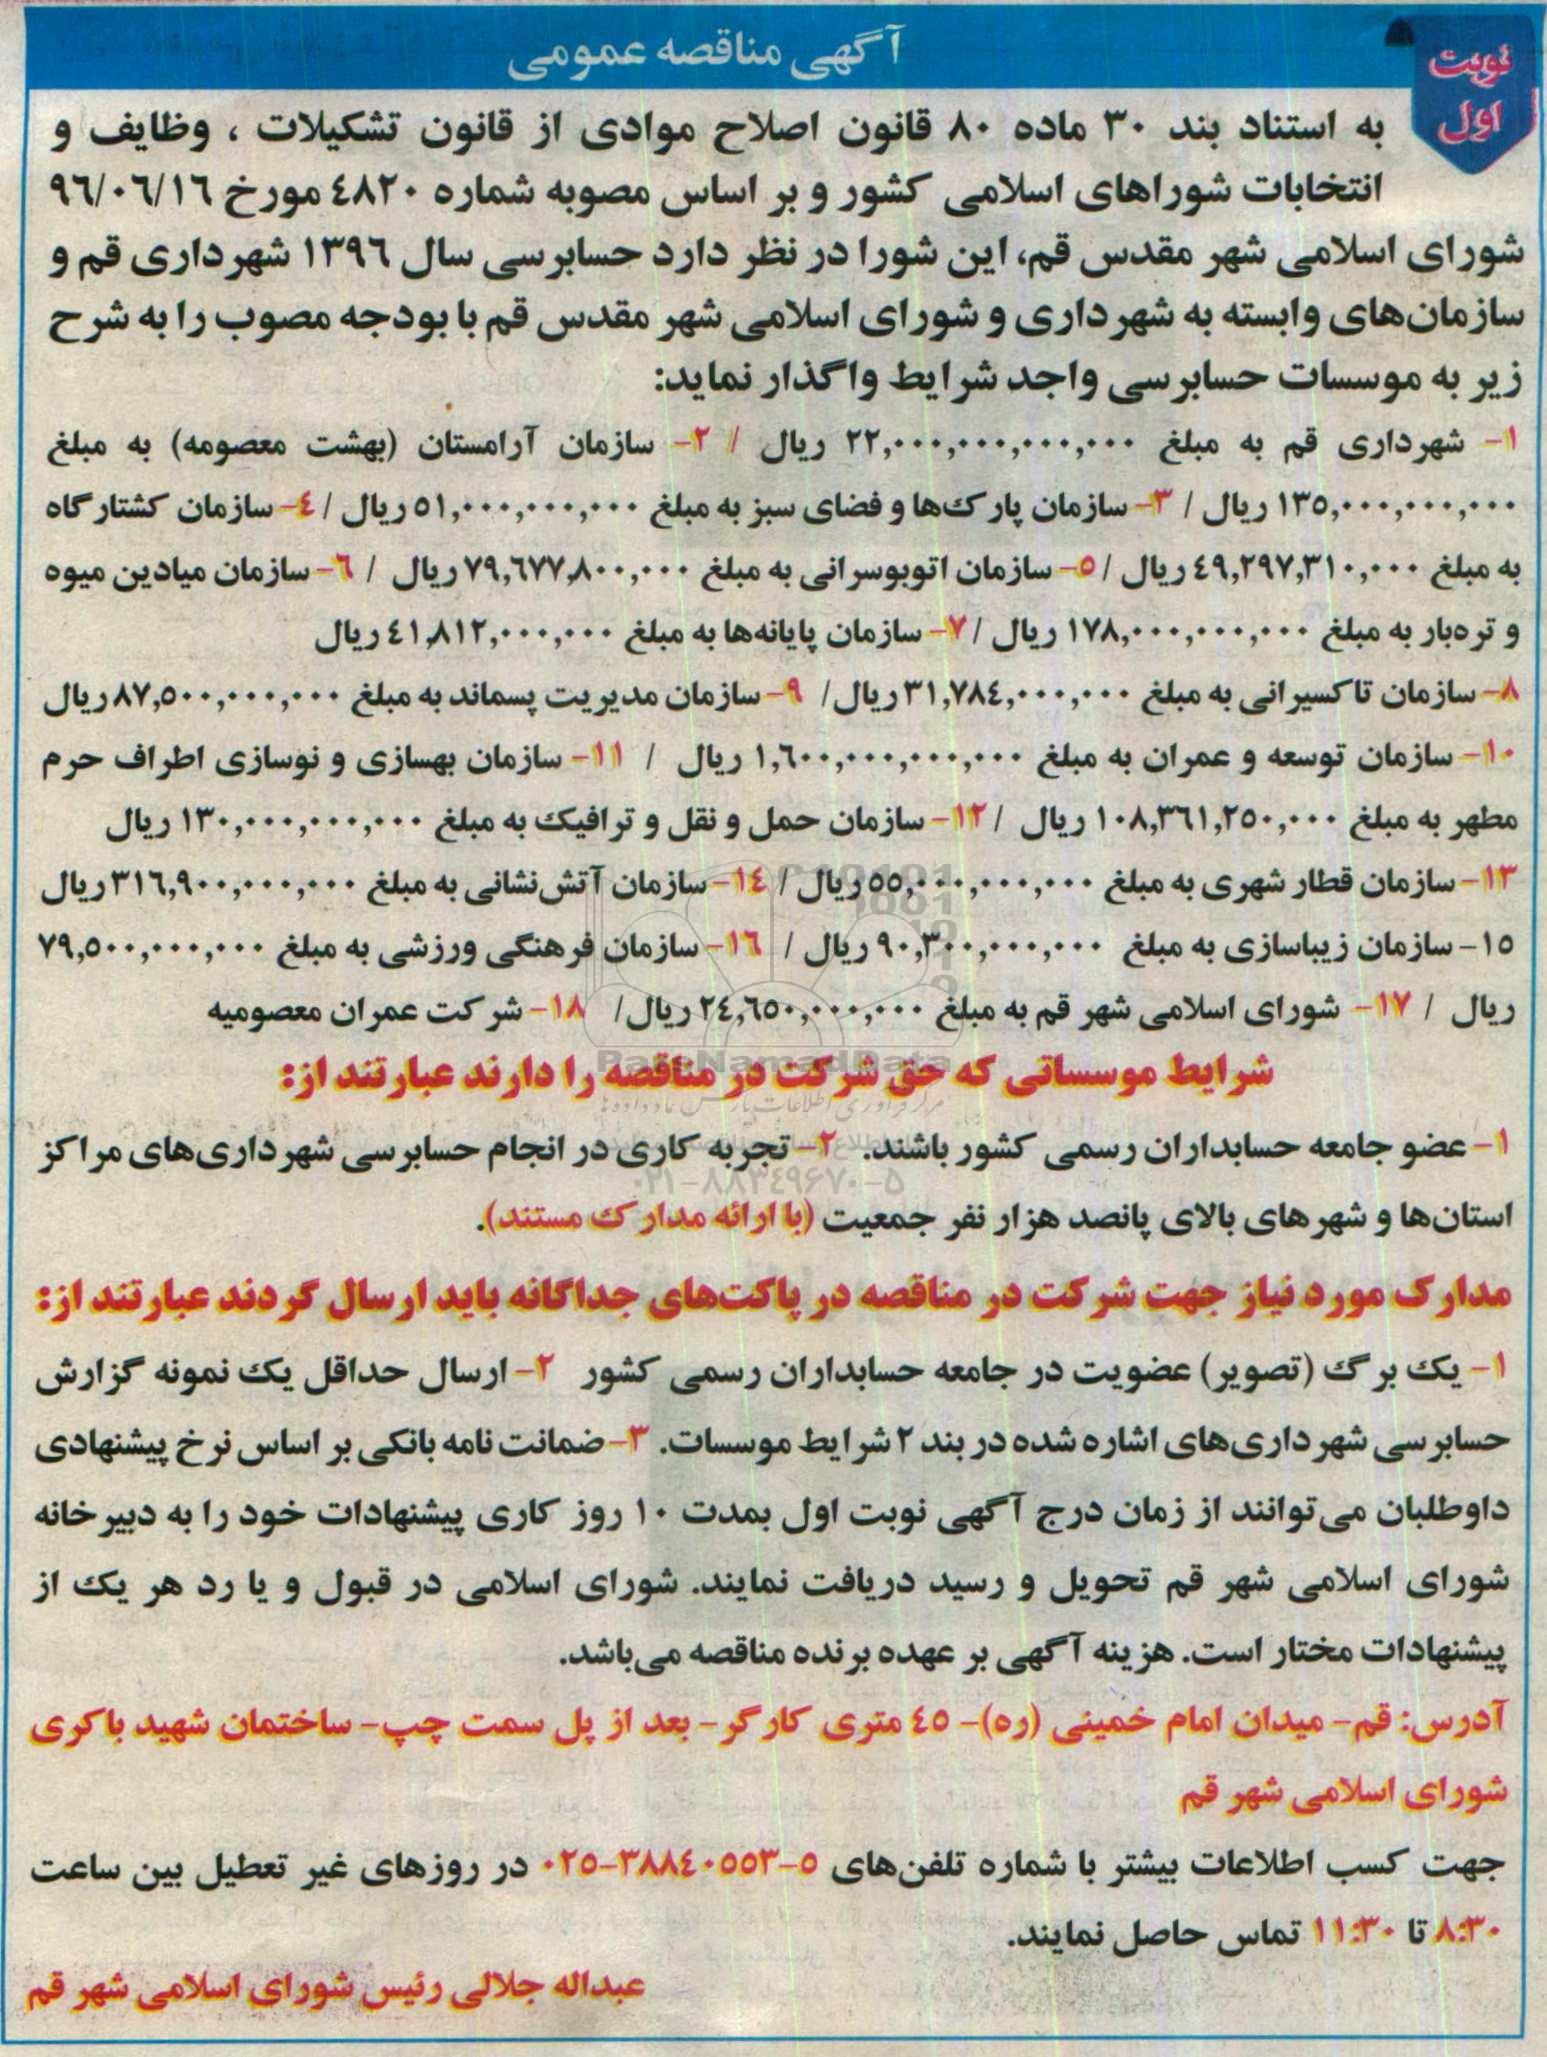 آگهی مناقصه عمومی
نوبت
اول
به استناد بند ۳۰ ماده ۸۰ قانون اصلاح موادی از قانون تشکیلات ، وظایف و
انتخابات شوراهای اسلامی کشور و بر اساس مصوبه شماره ٤٨٢٠ مورخ ٩٦/٠٦/١٦
شورای اسلامی شهر مقدس قم، این شورا در نظر دارد حسابرسی سال ١٣٩٦ شهرداری قم و
سازمان‌های وابسته به شهرداری و شورای اسلامی شهر مقدس قم با بودجه مصوب را به شرح
زیر به موسسات حسابرسی واجد شرایط واگذار نماید:
۱- شهرداری قم به مبلغ ۲۲,۰۰۰,۰۰۰,۰۰۰,۰۰۰ ریال / ۲- سازمان آرامستان (بهشت معصومه) به مبلغ
۱۳۵,۰۰۰,۰۰۰,۰۰۰ ریال / ۳- سازمان پارک‌ها و فضای سبز به مبلغ ۵۱,۰۰۰,۰۰۰,۰۰۰ ریال / ٤- سازمان کشتارگاه
به مبلغ ٤٩,٢٩٧,٣١٠,٠٠٠ ریال / ۵- سازمان اتوبوسرانی به مبلغ ٧٩,٦٧٧,٨٠٠,٠٠٠ ریال / ٦- سازمان میادین میوه
و تره‌بار به مبلغ ۱۷۸,۰۰۰,۰۰۰,۰۰۰ ریال / ۷- سازمان پایانه‌ها به مبلغ ٤١,٨١٢,٠٠٠,٠٠٠ ریال
۸- سازمان تاکسیرانی به مبلغ ٣١,٧٨٤,٠٠٠,٠٠٠ ریال/ ۹- سازمان مدیریت پسماند به مبلغ ۸۷,۵۰۰,۰۰۰,۰۰۰ ریال
۱۰- سازمان توسعه و عمران به مبلغ ١,٦٠٠,٠٠٠,٠٠٠,٠٠٠ ریال / ۱۱- سازمان بهسازی و نوسازی اطراف حرم
مطهر به مبلغ ١٠٨,٣٦١,٢٥٠,٠٠٠ ریال / ۱۲- سازمان حمل و نقل و ترافیک به مبلغ ۱۳۰,۰۰۰,۰۰۰,۰۰۰ ریال
۱۳- سازمان قطار شهری به مبلغ ۵۵,۰۰۰,۰۰۰,۰۰۰ ریال / ١٤- سازمان آتش‌نشانی به مبلغ ٣١٦,٩٠٠,٠٠٠,٠٠٠ ریال
۱۵- سازمان زیباسازی به مبلغ ۹۰,۳۰۰,۰۰۰,۰۰۰ ریال / ١٦- سازمان فرهنگی ورزشی به مبلغ ۷۹,۵۰۰,۰۰۰,۰۰۰
ریال / ۱۷- شورای اسلامی شهر قم به مبلغ ٢٤,٦٥٠,٠٠٠,٠٠٠ ریال/ ۱۸- شرکت عمران معصومیه
ParsNamadData
شرایط موسساتی که حق شرکت در مناقصه را دارند عبارتند از:
۱- عضو جامعه حسابداران رسمی کشور باشند. ۲- تجربه کاری در انجام حسابرسی شهرداری‌های مراکز
۰۲۱-۸۸۳٤۹۶۷۰-۵
استان‌ها و شهرهای بالای پانصد هزار نفر جمعیت (با ارائه مدارک مستند).
مدارک مورد نیاز جهت شرکت در مناقصه در پاکت‌های جداگانه باید ارسال گردند عبارتند از:
۱- یک برگ (تصویر) عضویت در جامعه حسابداران رسمی کشور ۲- ارسال حداقل یک نمونه گزارش
حسابرسی شهرداری‌های اشاره شده در بند ۲ شرایط موسسات. ۳- ضمانت نامه بانکی بر اساس نرخ پیشنهادی
داوطلبان می‌توانند از زمان درج آگهی نوبت اول بمدت ۱۰ روز کاری پیشنهادات خود را به دبیرخانه
شورای اسلامی شهر قم تحویل و رسید دریافت نمایند. شورای اسلامی در قبول و یا رد هر یک از
پیشنهادات مختار است. هزینه آگهی بر عهده برنده مناقصه می‌باشد.
آدرس: قم- میدان امام خمینی (ره)- ٤٥ متری کارگر- بعد از پل سمت چپ- ساختمان شهید باکری
شورای اسلامی شهر قم
جهت کسب اطلاعات بیشتر با شماره تلفن‌های ۵-۳۸۸٤۰۵۵۳-۰۲۵ در روزهای غیر تعطیل بین ساعت
۸:۳۰ تا ۱۱:۳۰ تماس حاصل نمایند.
عبداله جلالی رئیس شورای اسلامی شهر قم